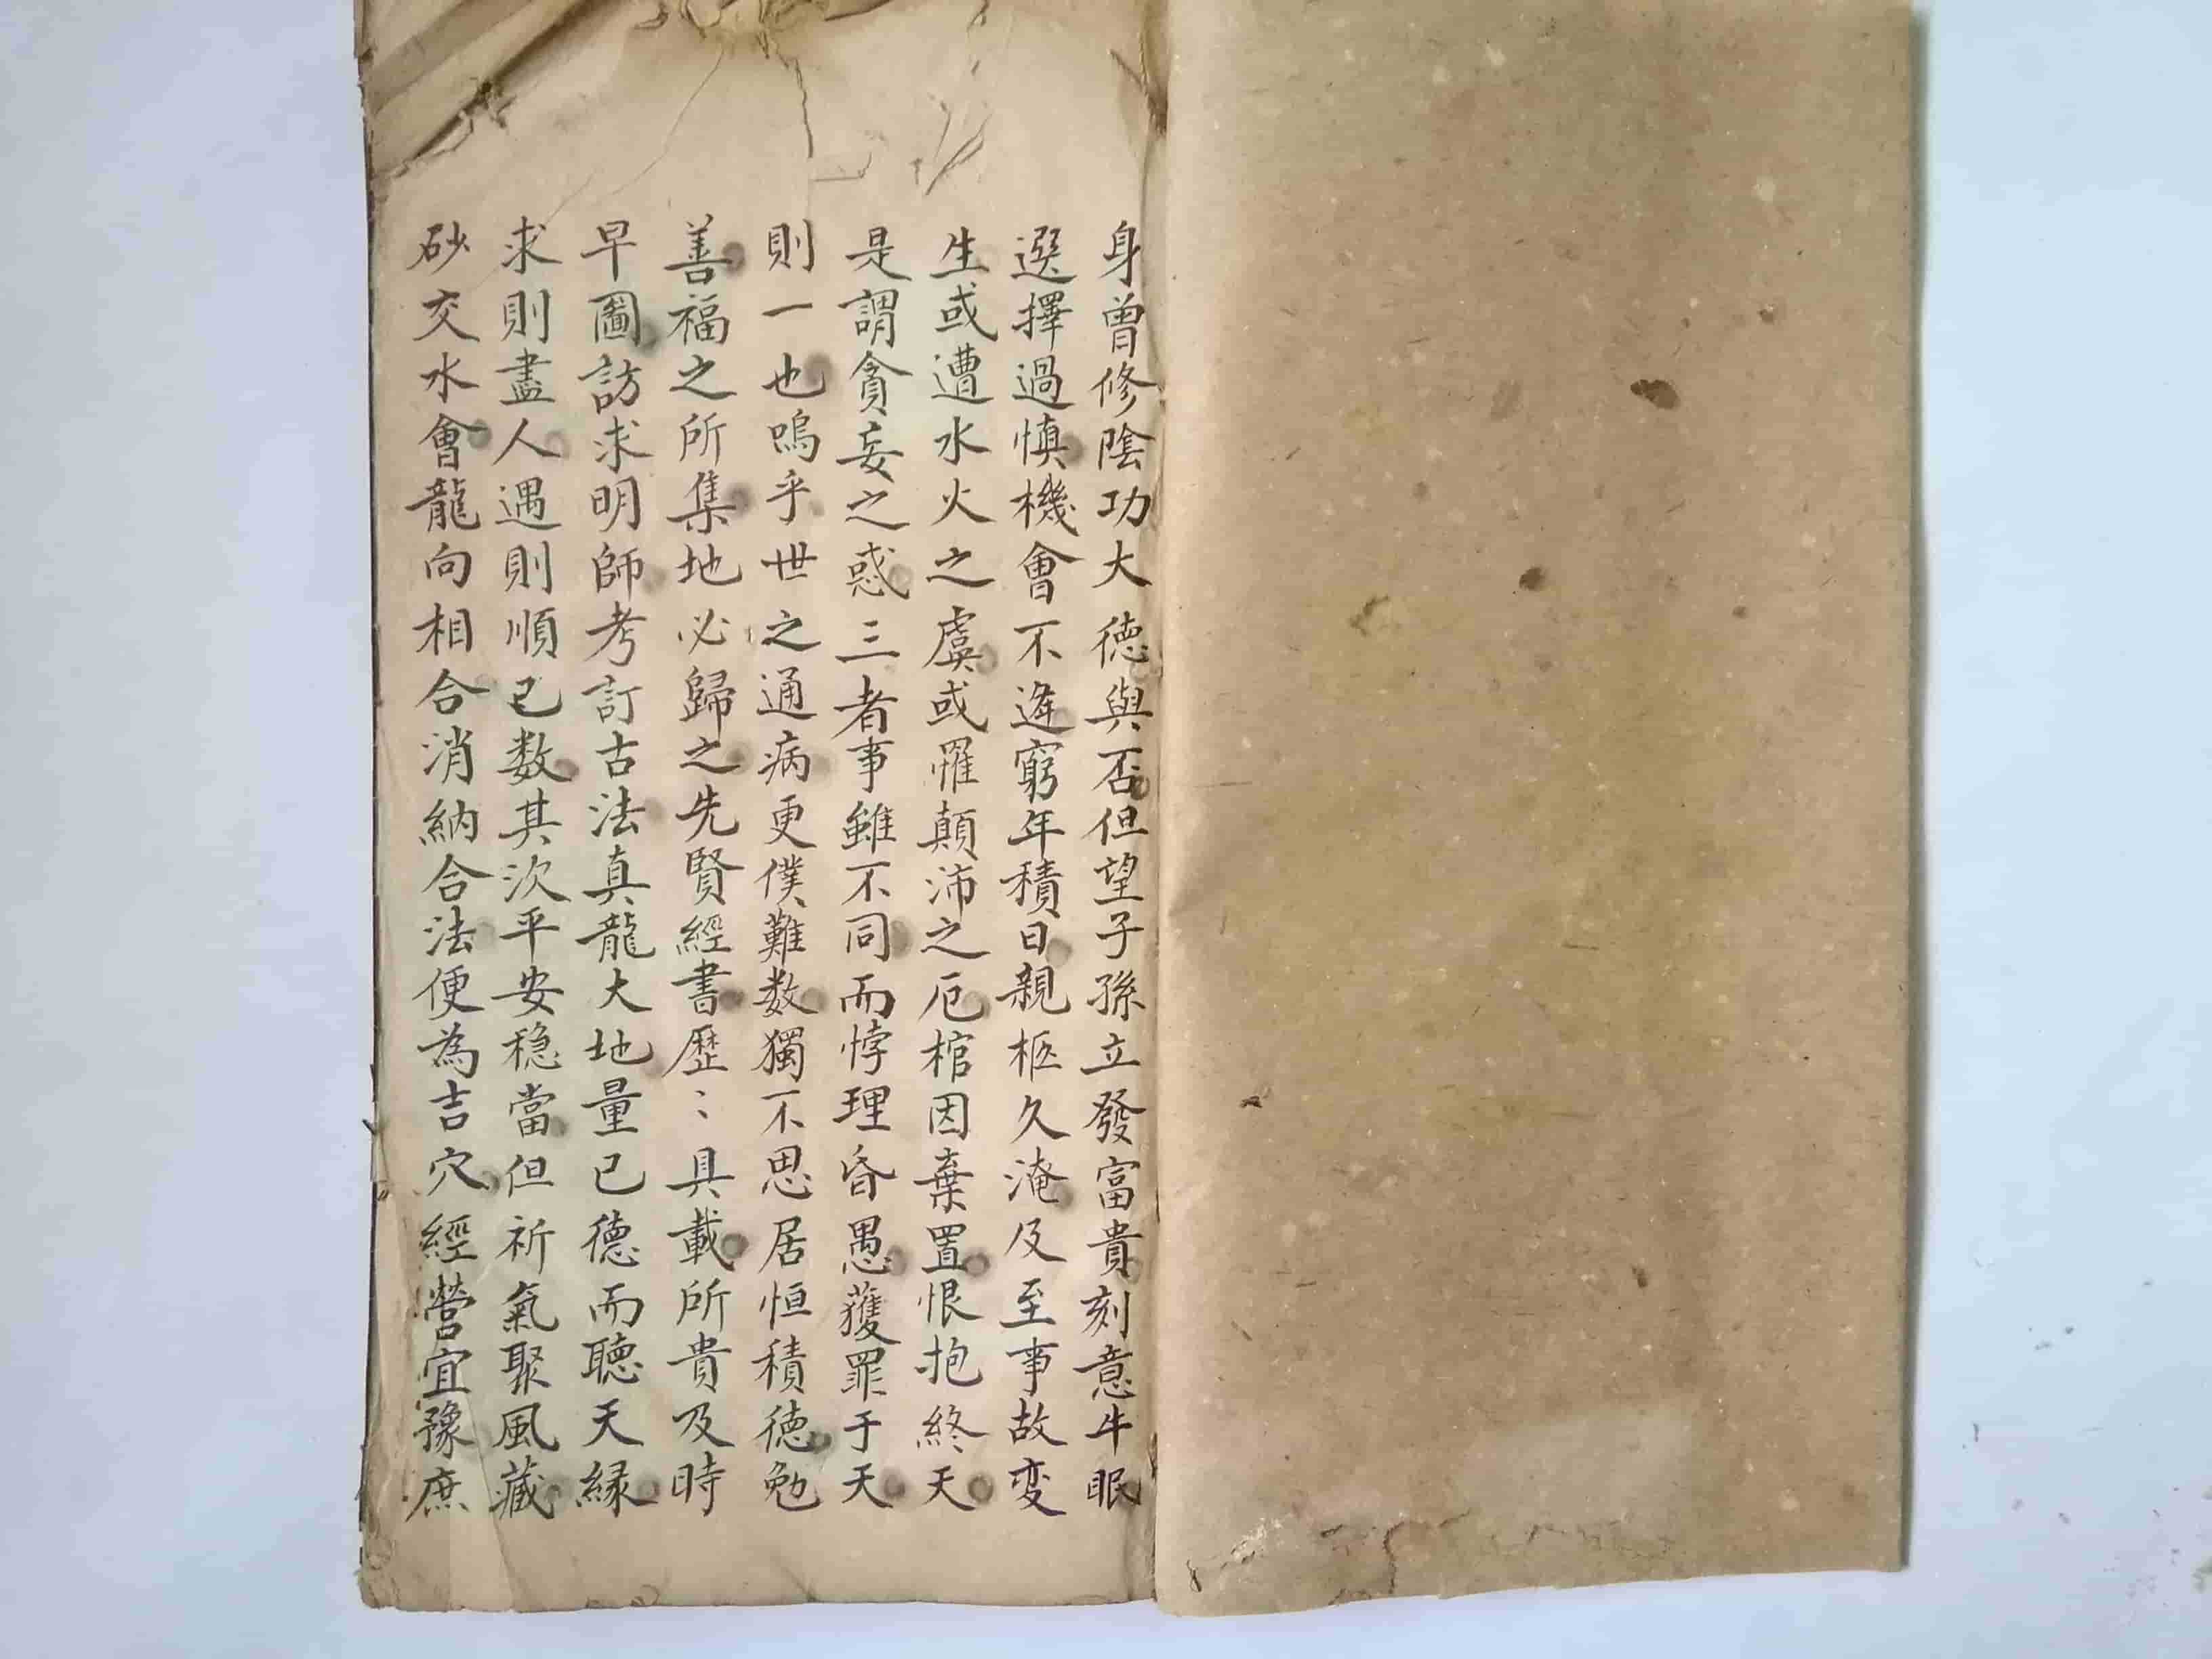 身曾修陰功大德與否但望子孫立發富貴刻意牛眠
選擇過慎機會不逢窮年積日親柩久淹及至事故変
生或遭水火之虞或罹顛沛之厄棺因棄置恨抱終天
是謂貪妄之惑三者事雖不同而悖理昏愚獲罪于天
則一也嗚乎世之通病更僕難数獨不思居恒積德勉
善福之所集地必歸之先賢經書歷〻具載所貴及時
早圖訪求明師考訂古法真龍大地量已德而聽天緣
求則盡人遇則順已数其次平安稳當但祈氣聚風藏
砂交水會龍向相合消納合法便為吉穴經營宜豫庶